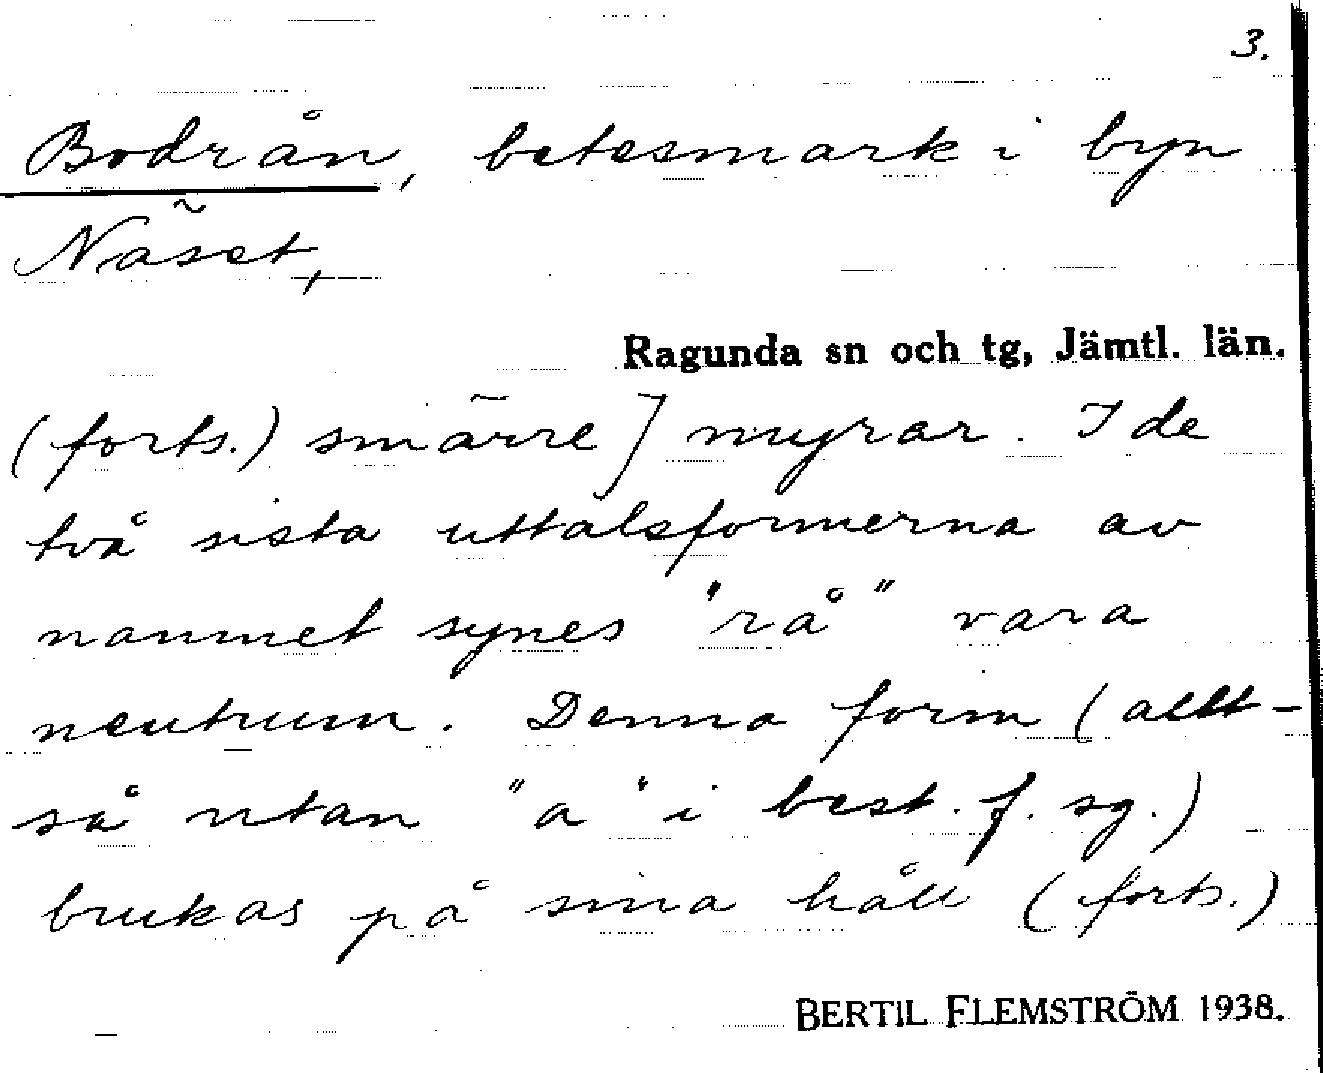 3.
Bodrån, betesmark i byn
Näset,
Ragunda sn och tg, Jämtl. län.
(forts.) smärre] myrar. I de
två sista uttalsformerna av
namnet synes "rå" vara
neutrum. Denna form (allt-
så utan "a" i best. f. sg.)
brukas på sina håll (forts.)
BERTIL FLEMSTRÖM 1938.